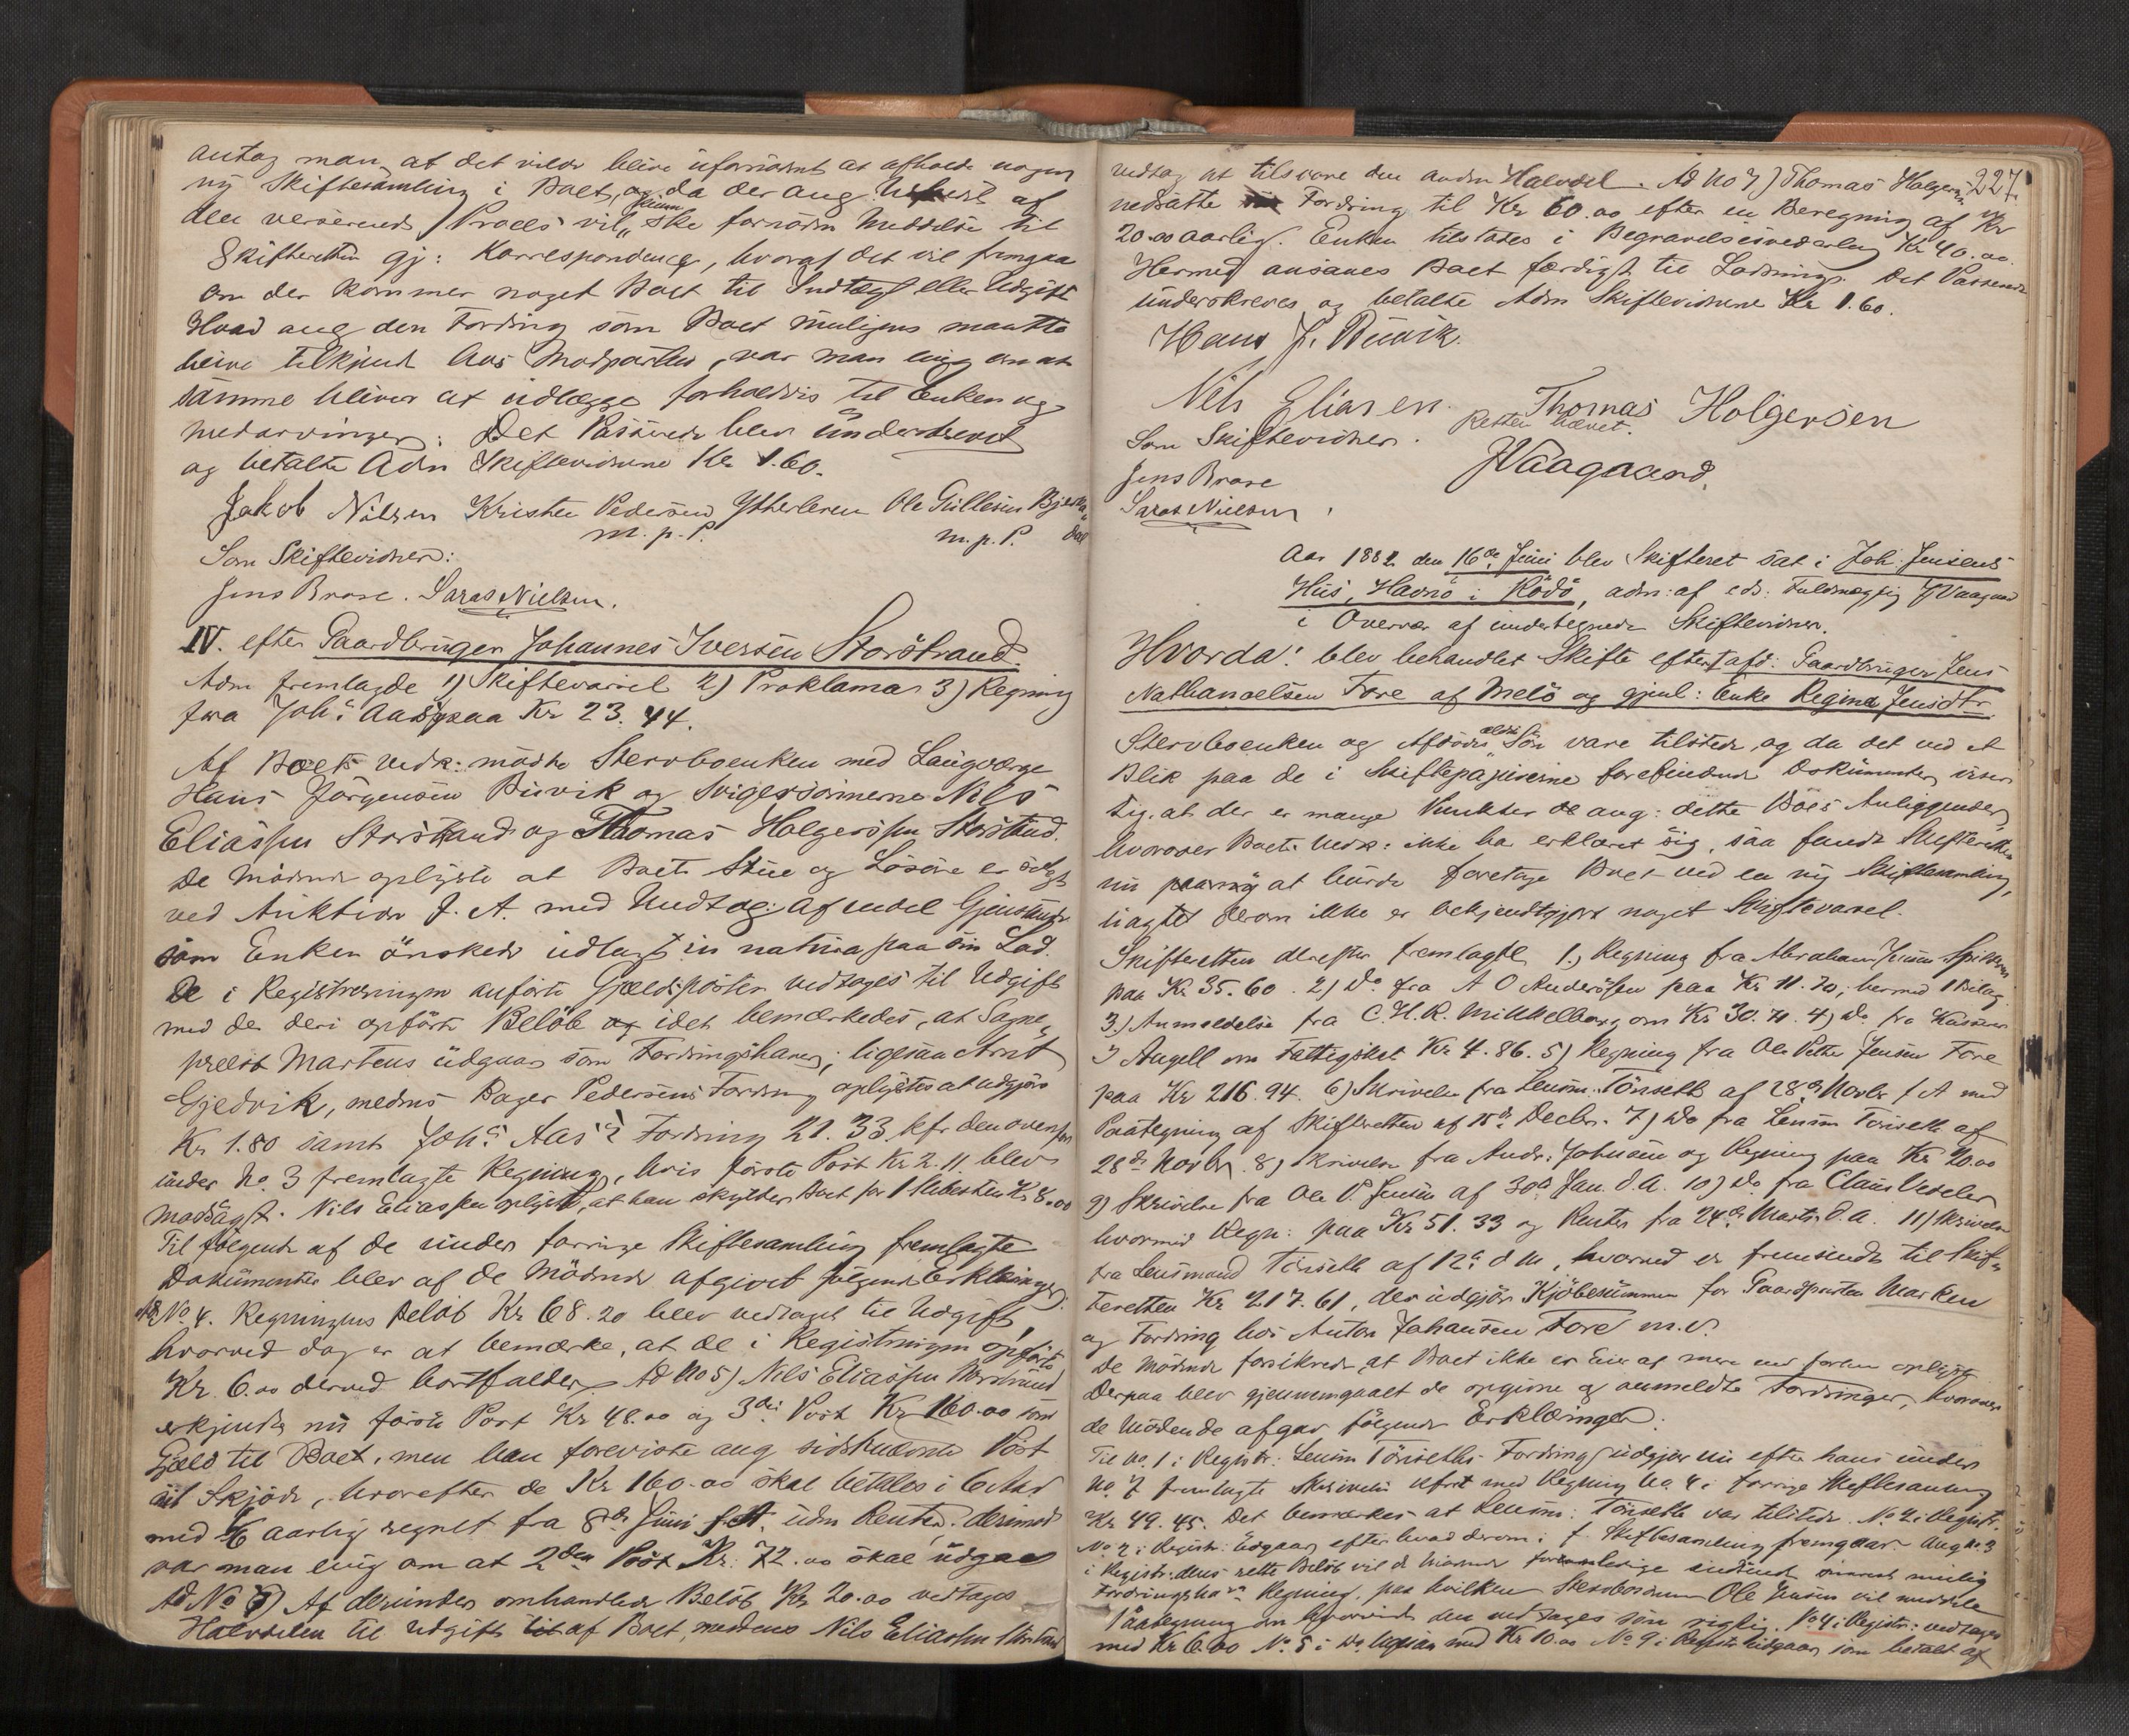 antog man, at det vilde blive ufornødent at afholde nogen
ny Skiftesamling i Boet, og da der ang. Udfald af
den verserende Proces vil kunne ske fornøden Meddelse til
Skifteretten gj: Korrespondence, hvoraf det vil fremgaa
om der kommer noget Boet til Indtægt eller Udgift
Hvad ang den Fordring som Boet muligens maatte
blive tilkjendt hos Modparten, var man enig om at
samme bliver at udlægge forholdvis til Enken og
Medarvinger. Det Passerede blev underskrevet
og betalte Adm Skiftevidnerne Kr 1.60.
Jakob Nilsen Kristen Pedersen Ytterleren Ole Gullesen Bjerka-
m. p. P. m. p. P. dal
Som Skiftevidner:
Jens Brose. Saras Nielsen.
IV. efter Gaardbruger Johannes Iversen Storstrand.
Adm fremlagde 1) Skiftevarsel 2) Proklama 3) Regning
fra Joh.s Aas paa Kr 23.44.
Af Boets Vedk: mødte Stervboenken med Laugværge
Hans Jørgensen Buvik og Svigersønnerne Nils
Eliassen Storstrand og Thomas Holgersen Storstrand.
De Mødende oplyste at Boets Stue og Løsøre er solgt
ved Auktion f. A. med Undtag: af endel Gjenstande
som Enken ønskede udlagt in natura paa sin Lod.
De i Registreringen anførte Gjældsposter vedtages til Udgift
med de deri opførte Beløb og idet bemærkedes, at Sogne-
præst Martens udgaar som Fordringshaver; ligesaa Arnt
Gjedvik, medens Bager Pedersens Fordring oplystes at udgjøre
Kr. 1.80 samt Joh.s Aas's Fordring 21.33 kfr den ovenfor
under No. 3 fremlagte Regning, hvis første Post Kr 2.11 blev
modsagt. Nils Eliassen oplyste, at han skyldte Boet for 1 Kr 8.00
Til følgende af de under forrige Skiftesamling fremlagte
Dokumenter blev af de Mødende afgivet følgende Erklæringer:
Ad No. 4. Regningens Beløb Kr 68.20 blev vedtaget til Udgift,
hvorved dog er at bemærke, at de i Registreringen opførte
Kr. 6.00 derved bortfalder. Ad No 5) Nils Eliassen Storstrand
erkjendte nu første Post Kr 48.00 og 3die Post Kr 160.00 som
Gjæld til Boet, men han foreviste ang sidstnævnte Post
sit Skjøde, hvorefter de Kr 160.00 skal betales i 6 Aar
med 1/6 aarlig regnet fra 8de Juni f.A. uden Renter. derimod
var man enig om at 2den Post Kr: 72.00 skal udgaa
Ad No 6) Af derunder omhandlede Beløb Kr 20.00 vedtages
Halvdelen til Udgift af Boet, medens Nils Eliassen Storstrand
227.
vedtog at tilsvare den anden Halvdel. Ad No 7) Thomas Holgersen
nedsatte sin Fordring til Kr 60.00 efter en Beregning af Kr
20.00 aarlig. Enken tilstodes i Begravelsesvederlag Kr 40.00.
Hermed ansaaes Boet færdigt til Lodning. Det Passerede
underskreves og betalte Adm Skiftevidnerne Kr 1.60.
Hans J. Buvik.
Nils Eliasen. Thomas Holgersen
Som Skiftevidner. Retten hævet.
Jens Brose JVaagaard.
Saras Nielsen
Aar 1882 den 16de Juni blev Skifteret sat i Joh. Jensens
Hus, Havnø i Rødø, adm: af eds: Fuldmægtig JVaagaard
i Overvær af undertegnede Skiftevidner.
Hvorda! blev behandlet Skifte efter afd: Gaardbruger Jens
Nathanaelsen Fore af Melø og gjenl: Enke Regina Jensdtr.
Stervboenken og Afdødes ældste Søn vare tilstede og da det ved et
Blik paa de i Skiftepapirerne forefindende Dokumenter viser
sig, at der er mange Punkter ang: dette Boes Anliggender,
hvorover Boets Vedk: ikke har erklæret sig, saa fandt Skifteretten
nu at burde foretage Boet ved en ny Skiftesamling,
uagtet derom ikke er bekjendtgjort noget Skiftevarsel.
Skifteretten derefter fremlagde 1.) Regning fra Abraham Jensen
paa Kr 35.60. 2) Do fra A O Anderssen paa Kr 11.70, hermed 1 Bilag
3.) Anmeldelse fra C.H.R. Mikkelborg om Kr 30.71. 4) Do fra Kasserer
J Angell om Fattigskat Kr 4.86. 5) Regning fra Ole Petter Jensen Fore
paa Kr 216.94. 6) Skrivelse fra Lensm. Tønseth af 28de Novbr f A med
Paategning af Skifteretten af 15de Decbr. 7) Do fra Lensm Tønseth af
28de Novbr. 8) Skrivelse fra Andr: Johnsen og Regning paa Kr 20.00
9) Skrivelse fra Ole P. Jensen af 30te Jan. d.A. 10) Do. fra Claus Vedeler
hvormed Regn: paa Kr 51.33 og Renter fra 24de Marts d.A. 11) Skrivelse
fra Lensmand Tønseth af 12te d M, hvorved er fremsendt til Skif-
teretten Kr 217.61, der udgjør Kjøbesummen for Gaardparten Marken
og Fordring hos Anton Johansen Fore m.v.
De Mødende forsikrede at Boet ikke er Eier af mere end forhen oplyst
Derpaa blev gjennemgaaet de opgivne og anmeldte Fordringer, hvorover
de Mødende afgav følgende Erklæringer:
Til No. 1 i Registr: Lensm Tønseths Fordring udgjør nu efter hans under
No. 7 fremlagte Skrivelse kfrt med Regning No. 4 i forrige Skiftesamling
Kr 49.45. Det bemærkes at Lensm: Tønseth var tilstede. No 2 i Registr.
No 2 i Registr: udgaar efter hvad derom i f. Skiftesamling fremgaar. Ang No. 3
i Registr: dens rette Beløb vil de Mødende indsendt snarest mulig
Fordringshav.s Regning, paa hvilken Stervbosønnen Ole Jensen vil meddele
Paategning om hvorvidt den vedtages som rigtig. No 4 i Registr: vedtages
med Kr 6.00 No. 5 i Do. ligesaa med Kr 10.00 No 9 i Registr: udgaar som betalt af